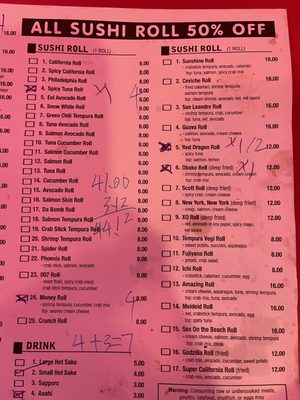 ALL SUSHI ROLL 50% OFF
SUSHI ROLL (1 ROLL)
1. California Roll 8.00
2. Spicy California Roll 8.00
3. Philadelphia Roll 8.00
4. Spicy Tuna Roll x1 4 8.00
5. Eel Avocado Roll 8.00
6. Snow White Roll 8.00
7. Green Chili Tempura Roll 8.00
8. Tuna Avocado Roll 8.00
9. Salmon Avocado Roll 8.00
10. Tuna Cucumber Roll 8.00
11. Salmon Cucumber Roll 8.00
12. Salmon Roll 8.00
13. Tuna Roll
14. Cucumber Roll 8.00
15. Avocado Roll 8.00
16. Salmon Skin Roll 8.00
17. Da Bomb Roll 8.00
18. Salmon Tempura Roll 8.00
19. Crab Stick Tempura Roll 8.00
20. Shrimp Tempura Roll 8.00
21. Spider Roll 8.00
22. Phoenix Roll 8.00
crab stick, salmon, avocado
23. 007 Roll 8.00
meat floss, spicy crab meat,
crab stick tempura, cucumber
24. Money Roll 4 8.00
shrimp tempura, cucumber, crab
25. Crunch Roll 8.00
41.00
4+3=7
DRINK
1. Large Hot Sake 5.00
2. Small Hot Sake 4.00
3. Sapporo 3.00
4. Asahi 3.00
SUSHI ROLL (1 ROLL)
1. Sunshine Roll 16.00
- crabstick tempura, avocado, calamari
top: tuna, salmon, spicy crab mix
2. Ceviche Roll 16.00
- fried calamari, shrimp tempura,
salmon tempura
top: cream shrimp, avocado, eel, eel sauce
3. San Leandro Roll 16.00
- eel, shrimp tempura, crab, cucumber
top: tuna, eel, avocado
4. Guava Roll 16.00
- salmon, avocado, cream cheese
top: tuna
5. Red Dragon Roll x1/2 16.00
- spicy tuna
top: tuna, salmon, lemon
6. Obako Bell (deep fried) x1 16.00
- shrimp tempura, avocado, cream cheese
top: crab mix
7. Scott Roll (deep fried) 16.00
- spicy crab, cream cheese
8. New York, New York (deep fried) 16.00
- unagi, salmon, cream cheese
9. XO Roll (deep fried) 16.00
- eel, avocado in soy paper, spicy mayo,
eel sauce
10. Tempura Vegi Roll 16.00
- sweet potato, zucchini, asparagus
11. Fujiyama Roll 16.00
- potato, crab salad
12. Ichi Roll 16.00
- crabstick, calamari, cucumber, egg
13. Amazing Roll 16.00
- cream cheese, asparagus, tuna, shrimp tempura
top: crab mix, tuna, avocado
14. Meideid Roll 16.00
- eel, crabstick tempura, avocado, egg
top: spicy tuna
15. Sex On the Beach Roll 16.00
- cream cheese, salmon, avocado, shrimp tempura
top: crab mix, steak
16. Godzilla Roll (fried) 16.00
- crab mix, avocado, cucumber, sweet potato
17. Super California Roll (fried) 16.00
- crab mix, avocado, cucumber
Warning: Consuming raw or undercooked meats,
poultry, seafood, shellfish, or eggs may